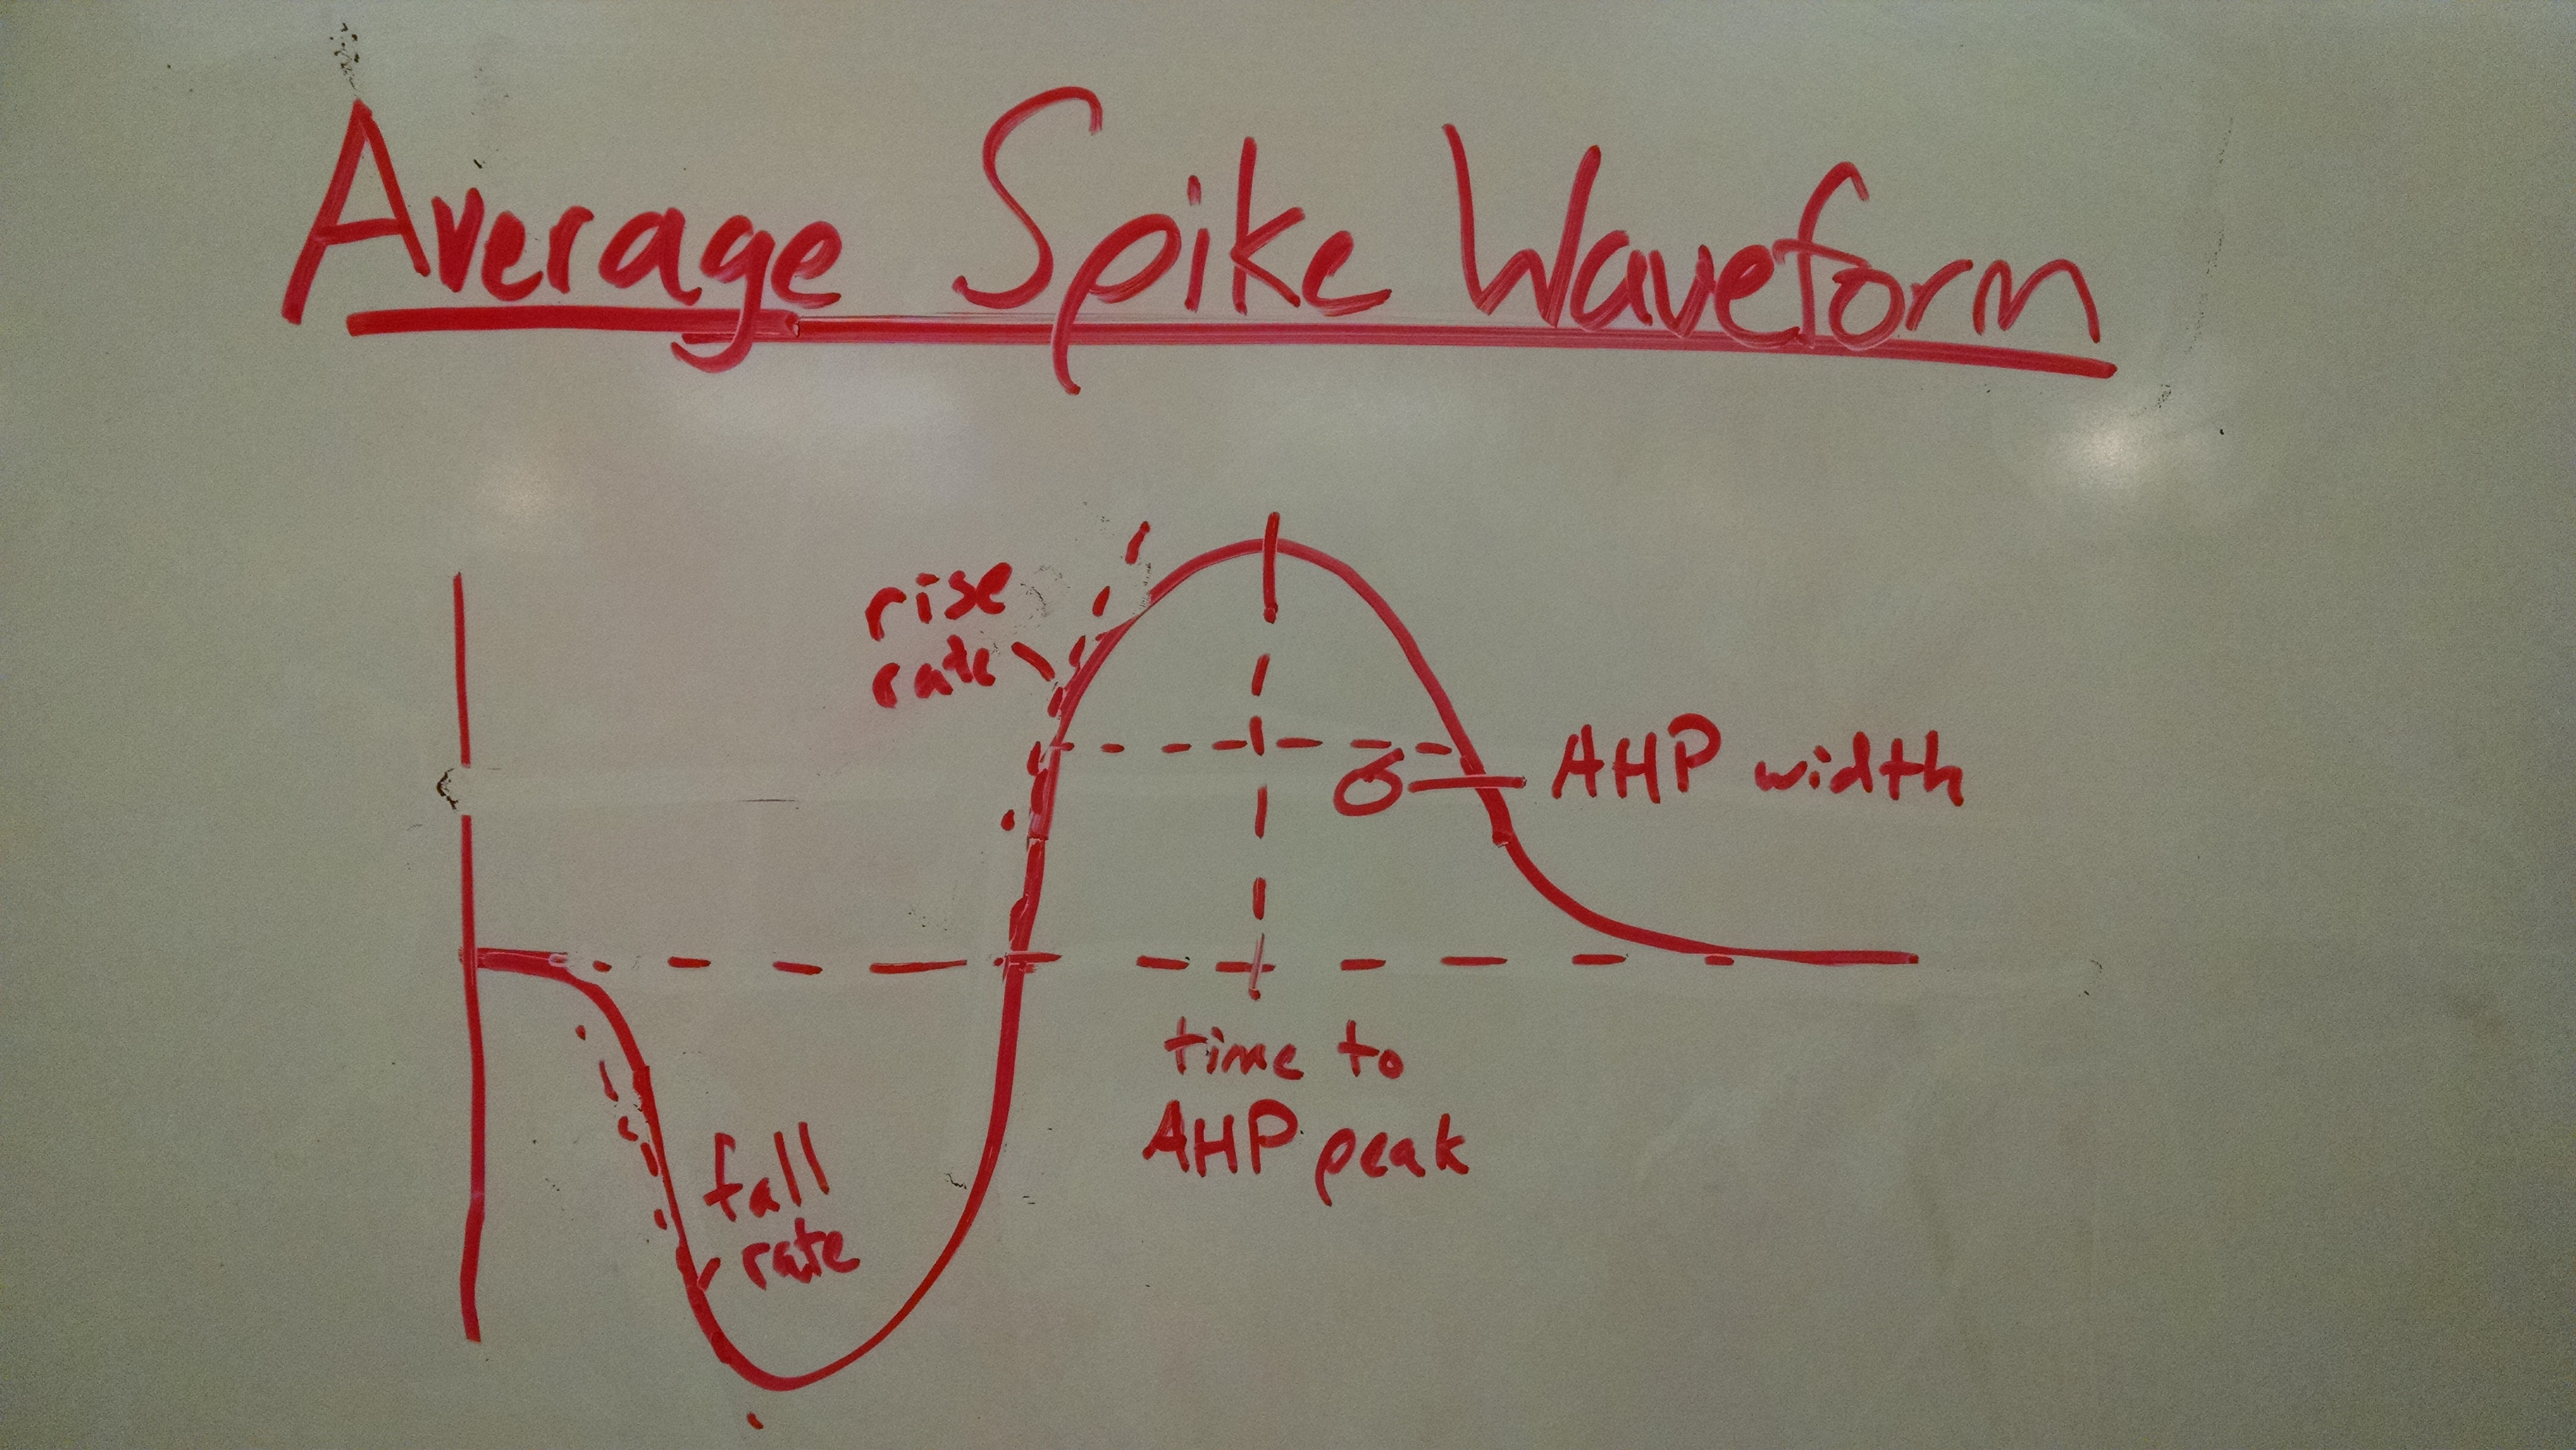 Average Spike Waveform
rise
rate
σ AHP width
time to
AHP peak
fall
rate